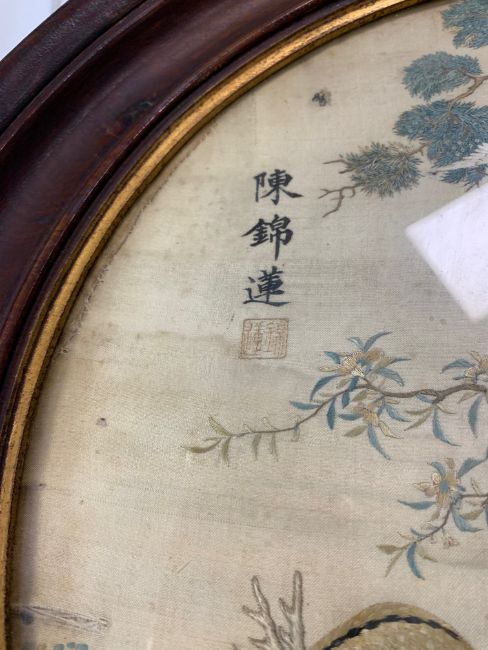 陳錦蓮